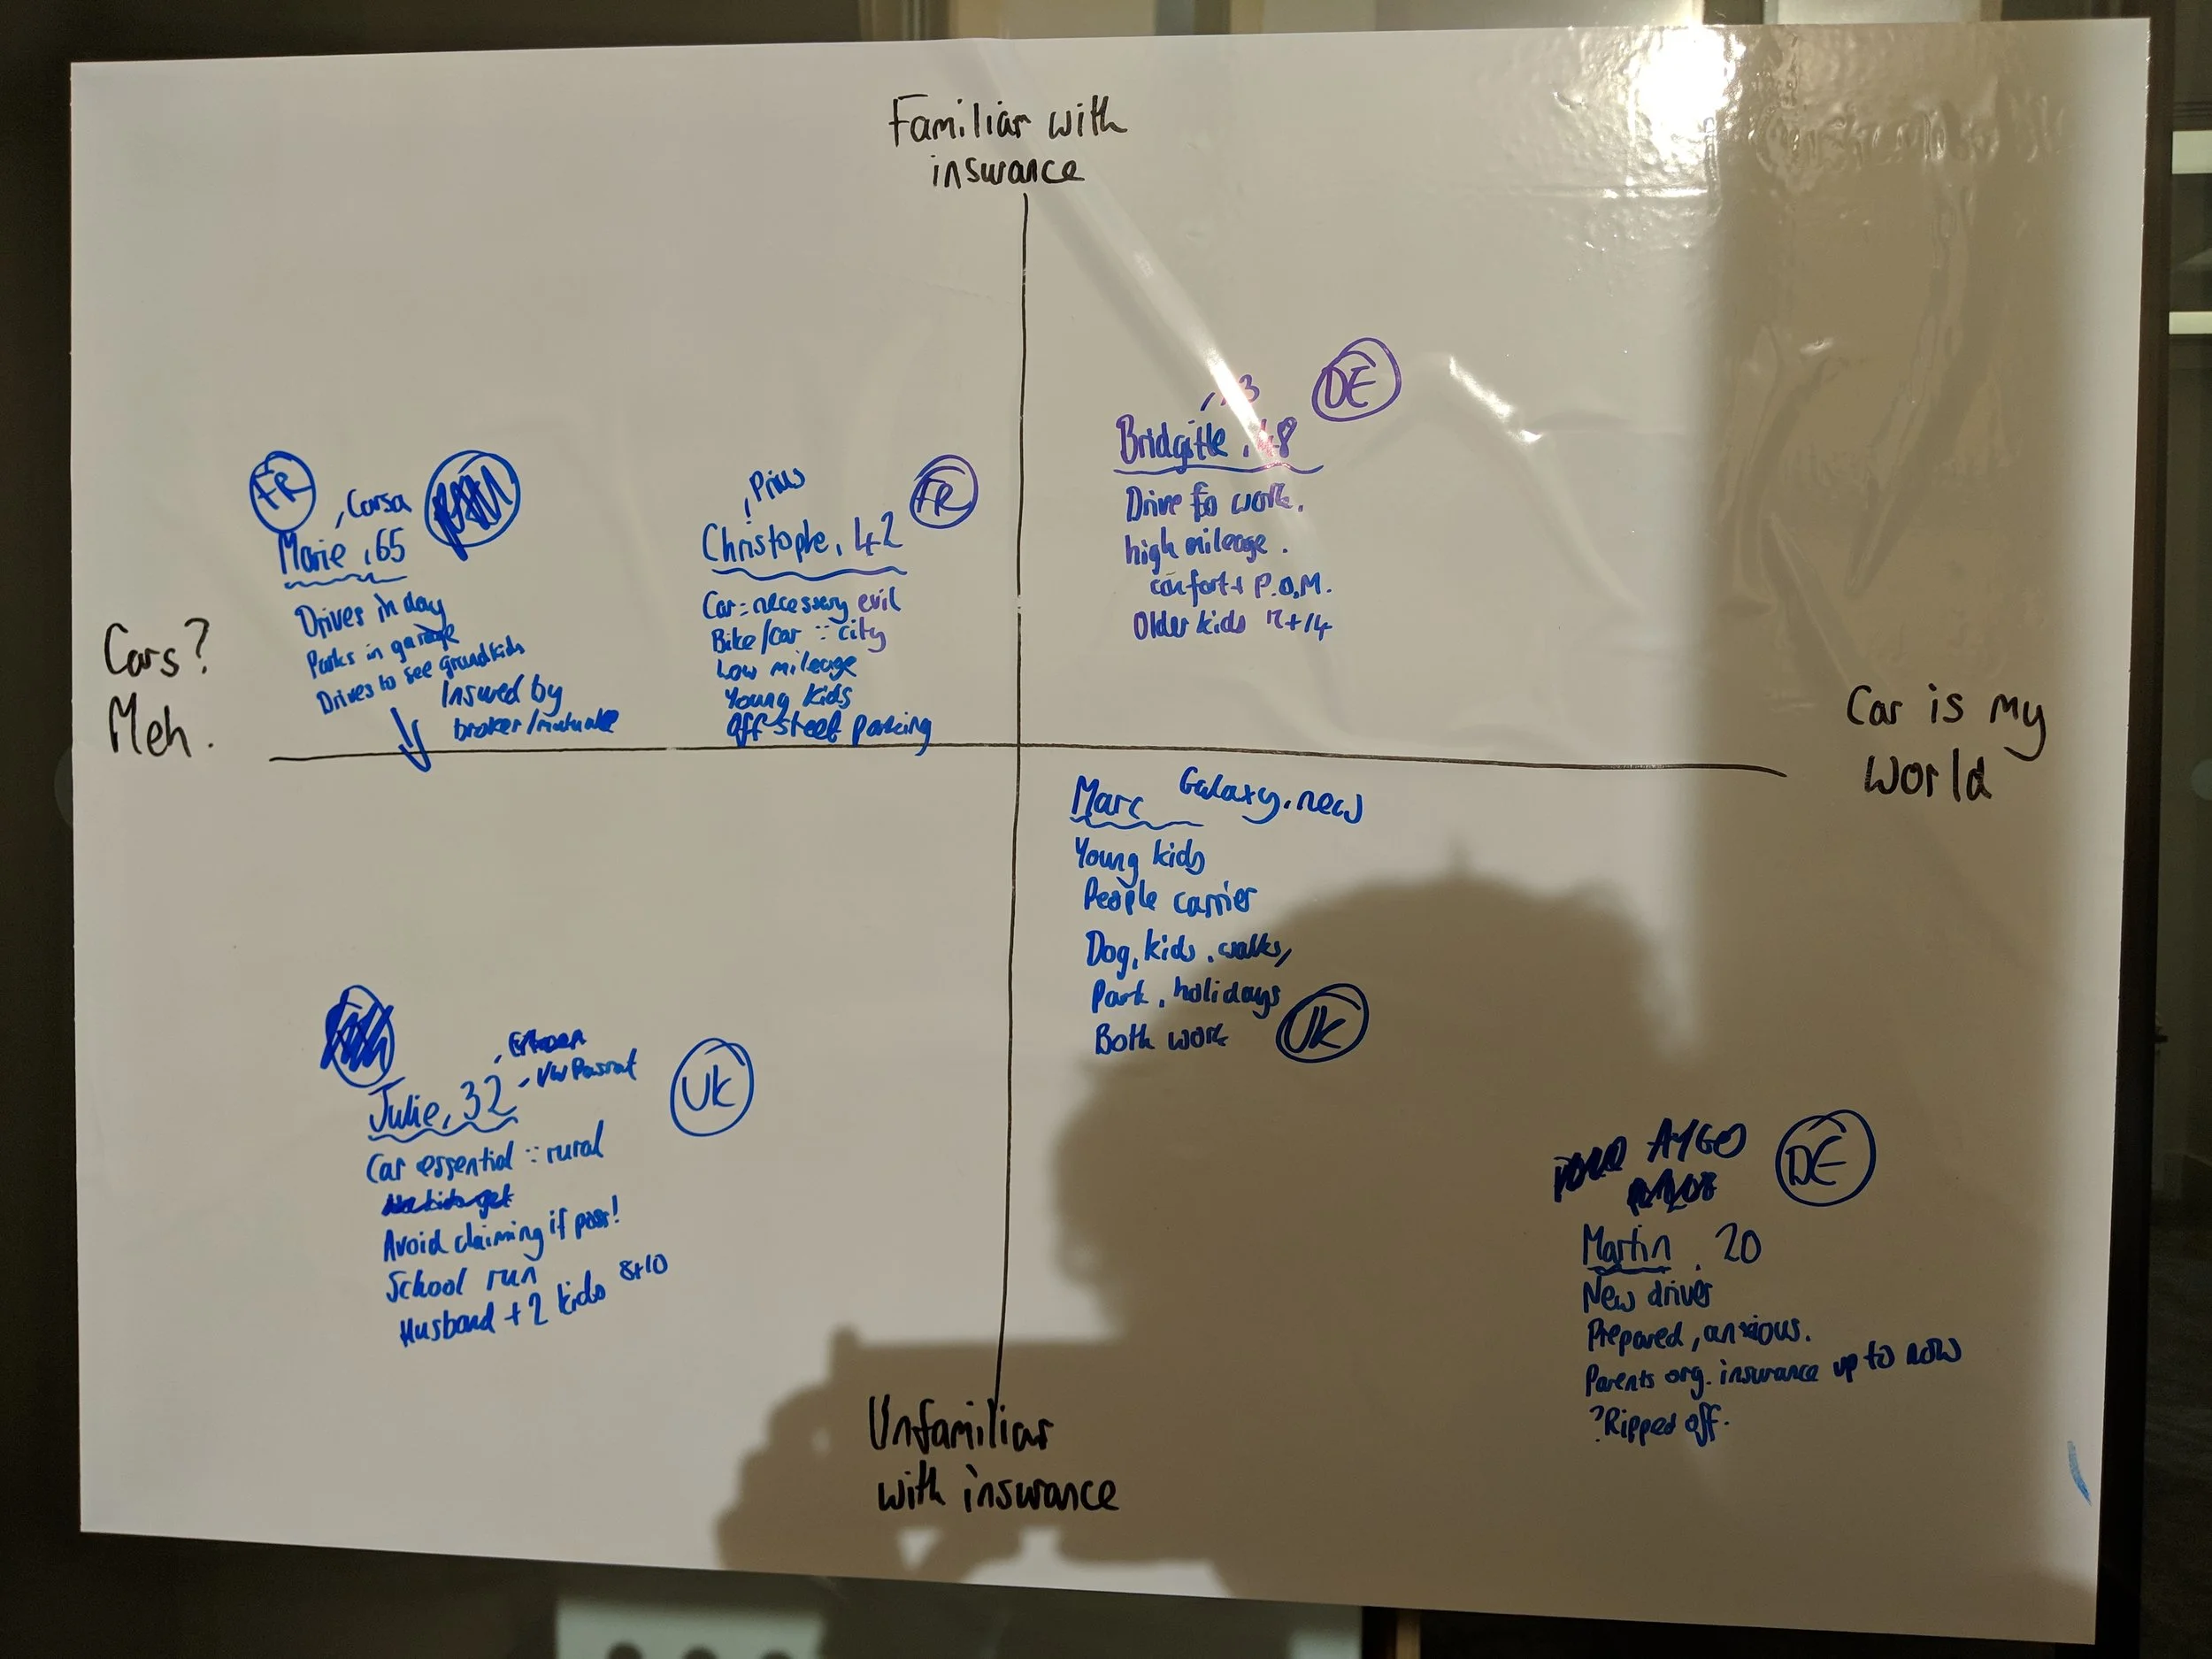 Familiar with
insurance
Cars?
Meh.
Car is my
World
Unfamiliar
with insurance
FR
, Corsa
Marie, 65
Drives in day
Parks in garage
Drives to see grandkids
Insured by
broker/mutuale
, Prius
FR
Christophe, 42
Car = necessary evil
Bike/car ∵ city
Low mileage
Young kids
Off-street parking
DE
Bridgitte, 48
Drive to work.
high mileage.
comfort + P.O.M.
Older kids 12+14
Marc Galaxy. new
Young kids
People carrier
Dog, kids, walks,
Park, holidays
Both work
UK
- VW Passat
UK
Julie, 32
Car essential ∵ rural
Avoid claiming if poss!
School run
Husband + 2 kids 8+10
AYGO
DE
Martin. 20
New driver
Prepared, anxious.
Parents org. insurance up to now
?Ripped off.